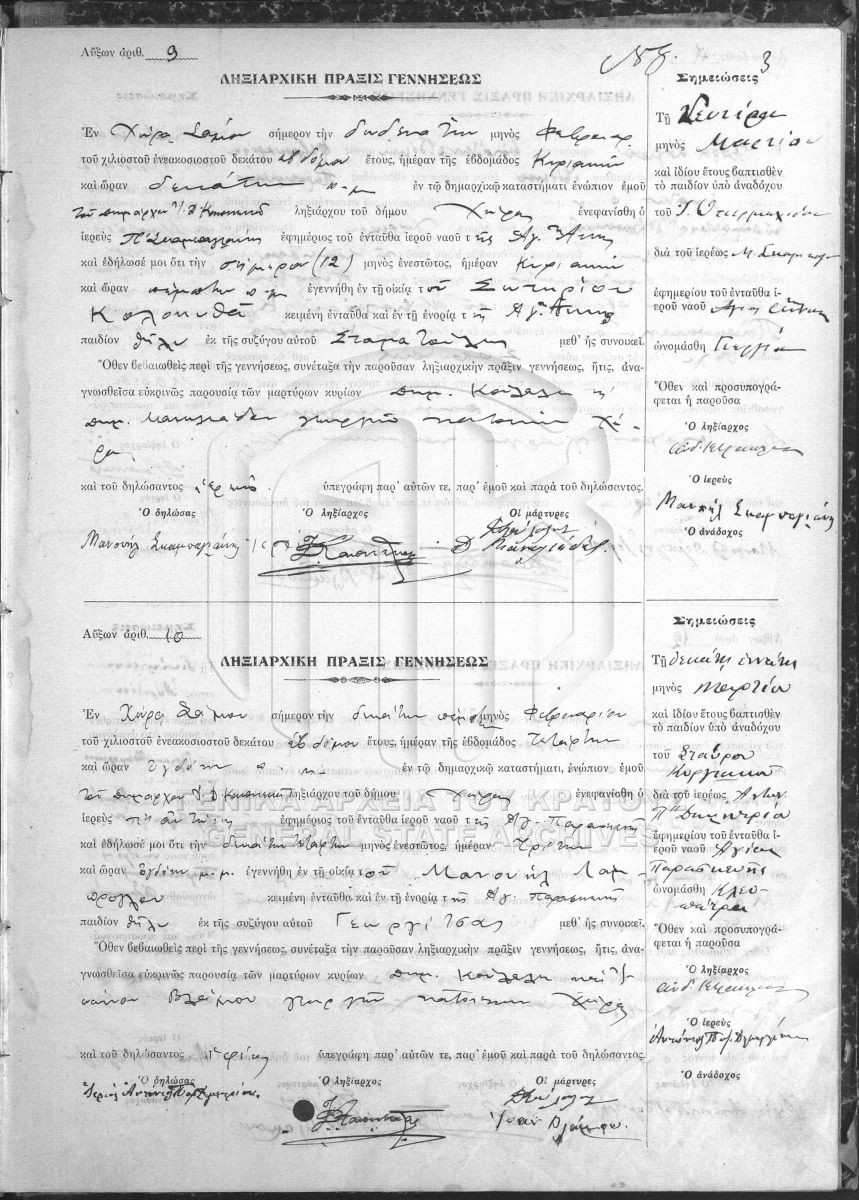 Αὔξων ἀριθ. 9
3
ΛΗΞΙΑΡΧΙΚΗ ΠΡΑΞΙΣ ΓΕΝΝΗΣΕΩΣ
Ἐν Χώρᾳ Σάμου σήμερον τὴν δωδεκάτην μηνὸς
τοῦ χιλιοστοῦ ἐνεακοσιοστοῦ δεκάτου ἑβδόμου ἔτους, ἡμέραν τῆς ἑβδομάδος Κυριακὴν
καὶ ὥραν δεκάτην π.μ. ἐν τῷ δημαρχικῷ καταστήματι ἐνώπιον ἐμοῦ
τοῦ δημάρχου ληξιάρχου τοῦ δήμου Χώρας ἐνεφανίσθη ὁ
ἱερεὺς ἐφημέριος τοῦ ἐνταῦθα ἱεροῦ ναοῦ τῆς Ἁγ. Ἄννης
καὶ ἐδήλωσέ μοι ὅτι τὴν σήμερον (12) μηνὸς ἐνεστῶτος, ἡμέραν Κυριακὴν
καὶ ὥραν πέμπτην π.μ. ἐγεννήθη ἐν τῇ οἰκίᾳ τοῦ Σωτηρίου
Κολοκυθᾶ κειμένῃ ἐνταῦθα καὶ ἐν τῇ ἐνορίᾳ τῆς Ἁγ. Ἄννης
παιδίον θῆλυ ἐκ τῆς συζύγου αὐτοῦ μεθ' ἧς συνοικεῖ.
Ὅθεν βεβαιωθεὶς περὶ τῆς γεννήσεως, συνέταξα τὴν παροῦσαν ληξιαρχικὴν πρᾶξιν γεννήσεως, ἥτις, ἀνα-
γνωσθεῖσα εὐκρινῶς παρουσίᾳ τῶν μαρτύρων κυρίων Δημ.
Δημ. κατοίκων Χώ-
ρας
καὶ τοῦ δηλώσαντος ἱερέως. ὑπεγράφη παρ' αὐτῶν τε, παρ' ἐμοῦ καὶ παρὰ τοῦ δηλώσαντος.
Ὁ δηλώσας Ὁ ληξίαρχος Οἱ μάρτυρες
Μανουὴλ
Σημειώσεις
Τῇ Δευτέρᾳ
μηνὸς Μαρτίου
καὶ ἰδίου ἔτους βαπτισθὲν
τὸ παιδίον ὑπὸ ἀναδόχου
τοῦ
διὰ τοῦ ἱερέως Μ.
ἐφημερίου τοῦ ἐνταῦθα ἱ-
εροῦ ναοῦ Ἁγίας Ἄννης
ὠνομάσθη Γεωργία
Ὅθεν καὶ προσυπογρά-
φεται ἡ παροῦσα
Ὁ ληξίαρχος
Ὁ ἱερεὺς
Μανουὴλ
Ὁ ἀνάδοχος
Αὔξων ἀριθ. 10
ΛΗΞΙΑΡΧΙΚΗ ΠΡΑΞΙΣ ΓΕΝΝΗΣΕΩΣ
Ἐν Χώρᾳ Σάμου σήμερον τὴν δεκάτην πέμπτην μηνὸς Φεβρουαρίου
τοῦ χιλιοστοῦ ἐνεακοσιοστοῦ δεκάτου ἑβδόμου ἔτους, ἡμέραν τῆς ἑβδομάδος Τετάρτην
καὶ ὥραν ὀγδόην π.μ. ἐν τῷ δημαρχικῷ καταστήματι, ἐνώπιον ἐμοῦ
τοῦ δημάρχου ληξιάρχου τοῦ δήμου Χώρας ἐνεφανίσθη ὁ
ἱερεὺς ἐφημέριος τοῦ ἐνταῦθα ἱεροῦ ναοῦ τῆς Ἁγ. Παρασκευῆς
καὶ ἐδήλωσέ μοι ὅτι τὴν δεκάτην τετάρτην μηνὸς ἐνεστῶτος, ἡμέραν Τρίτην
καὶ ὥραν ὀγδόην μ.μ. ἐγεννήθη ἐν τῇ οἰκίᾳ τοῦ Μανουὴλ Λαμ-
πρόγλου κειμένῃ ἐνταῦθα καὶ ἐν τῇ ἐνορίᾳ τῆς Ἁγ. Παρασκευῆς
παιδίον θῆλυ ἐκ τῆς συζύγου αὐτοῦ Γεωργίτσας μεθ' ἧς συνοικεῖ.
Ὅθεν βεβαιωθεὶς περὶ τῆς γεννήσεως, συνέταξα τὴν παροῦσαν ληξιαρχικὴν πρᾶξιν γεννήσεως, ἥτις, ἀνα-
γνωσθεῖσα εὐκρινῶς παρουσίᾳ τῶν μαρτύρων κυρίων Δημ. καὶ
κατοίκων Χώρας
καὶ τοῦ δηλώσαντος ἱερέως ὑπεγράφη παρ' αὐτῶν τε, παρ' ἐμοῦ καὶ παρὰ τοῦ δηλώσαντος.
Ὁ δηλώσας Ὁ ληξίαρχος Οἱ μάρτυρες
Ἱερεὺς Ἀντώνιος
Σημειώσεις
Τῇ δεκάτῃ ἐννάτῃ
μηνὸς Μαρτίου
καὶ ἰδίου ἔτους βαπτισθὲν
τὸ παιδίον ὑπὸ ἀναδόχου
τοῦ Σταύρου
διὰ τοῦ ἱερέως Ἀντων.
Π. Δημητρίου
ἐφημερίου τοῦ ἐνταῦθα ἱ-
εροῦ ναοῦ Ἁγίας
Παρασκευῆς
ὠνομάσθη Κλεο-
πάτρα
Ὅθεν καὶ προσυπογρά-
φεται ἡ παροῦσα
Ὁ ληξίαρχος
Ὁ ἱερεὺς
Ἀντώνιος
Ὁ ἀνάδοχος
ΓΕΝΙΚΑ ΑΡΧΕΙΑ ΤΟΥ ΚΡΑΤΟΥΣ
GENERAL STATE ARCHIVES